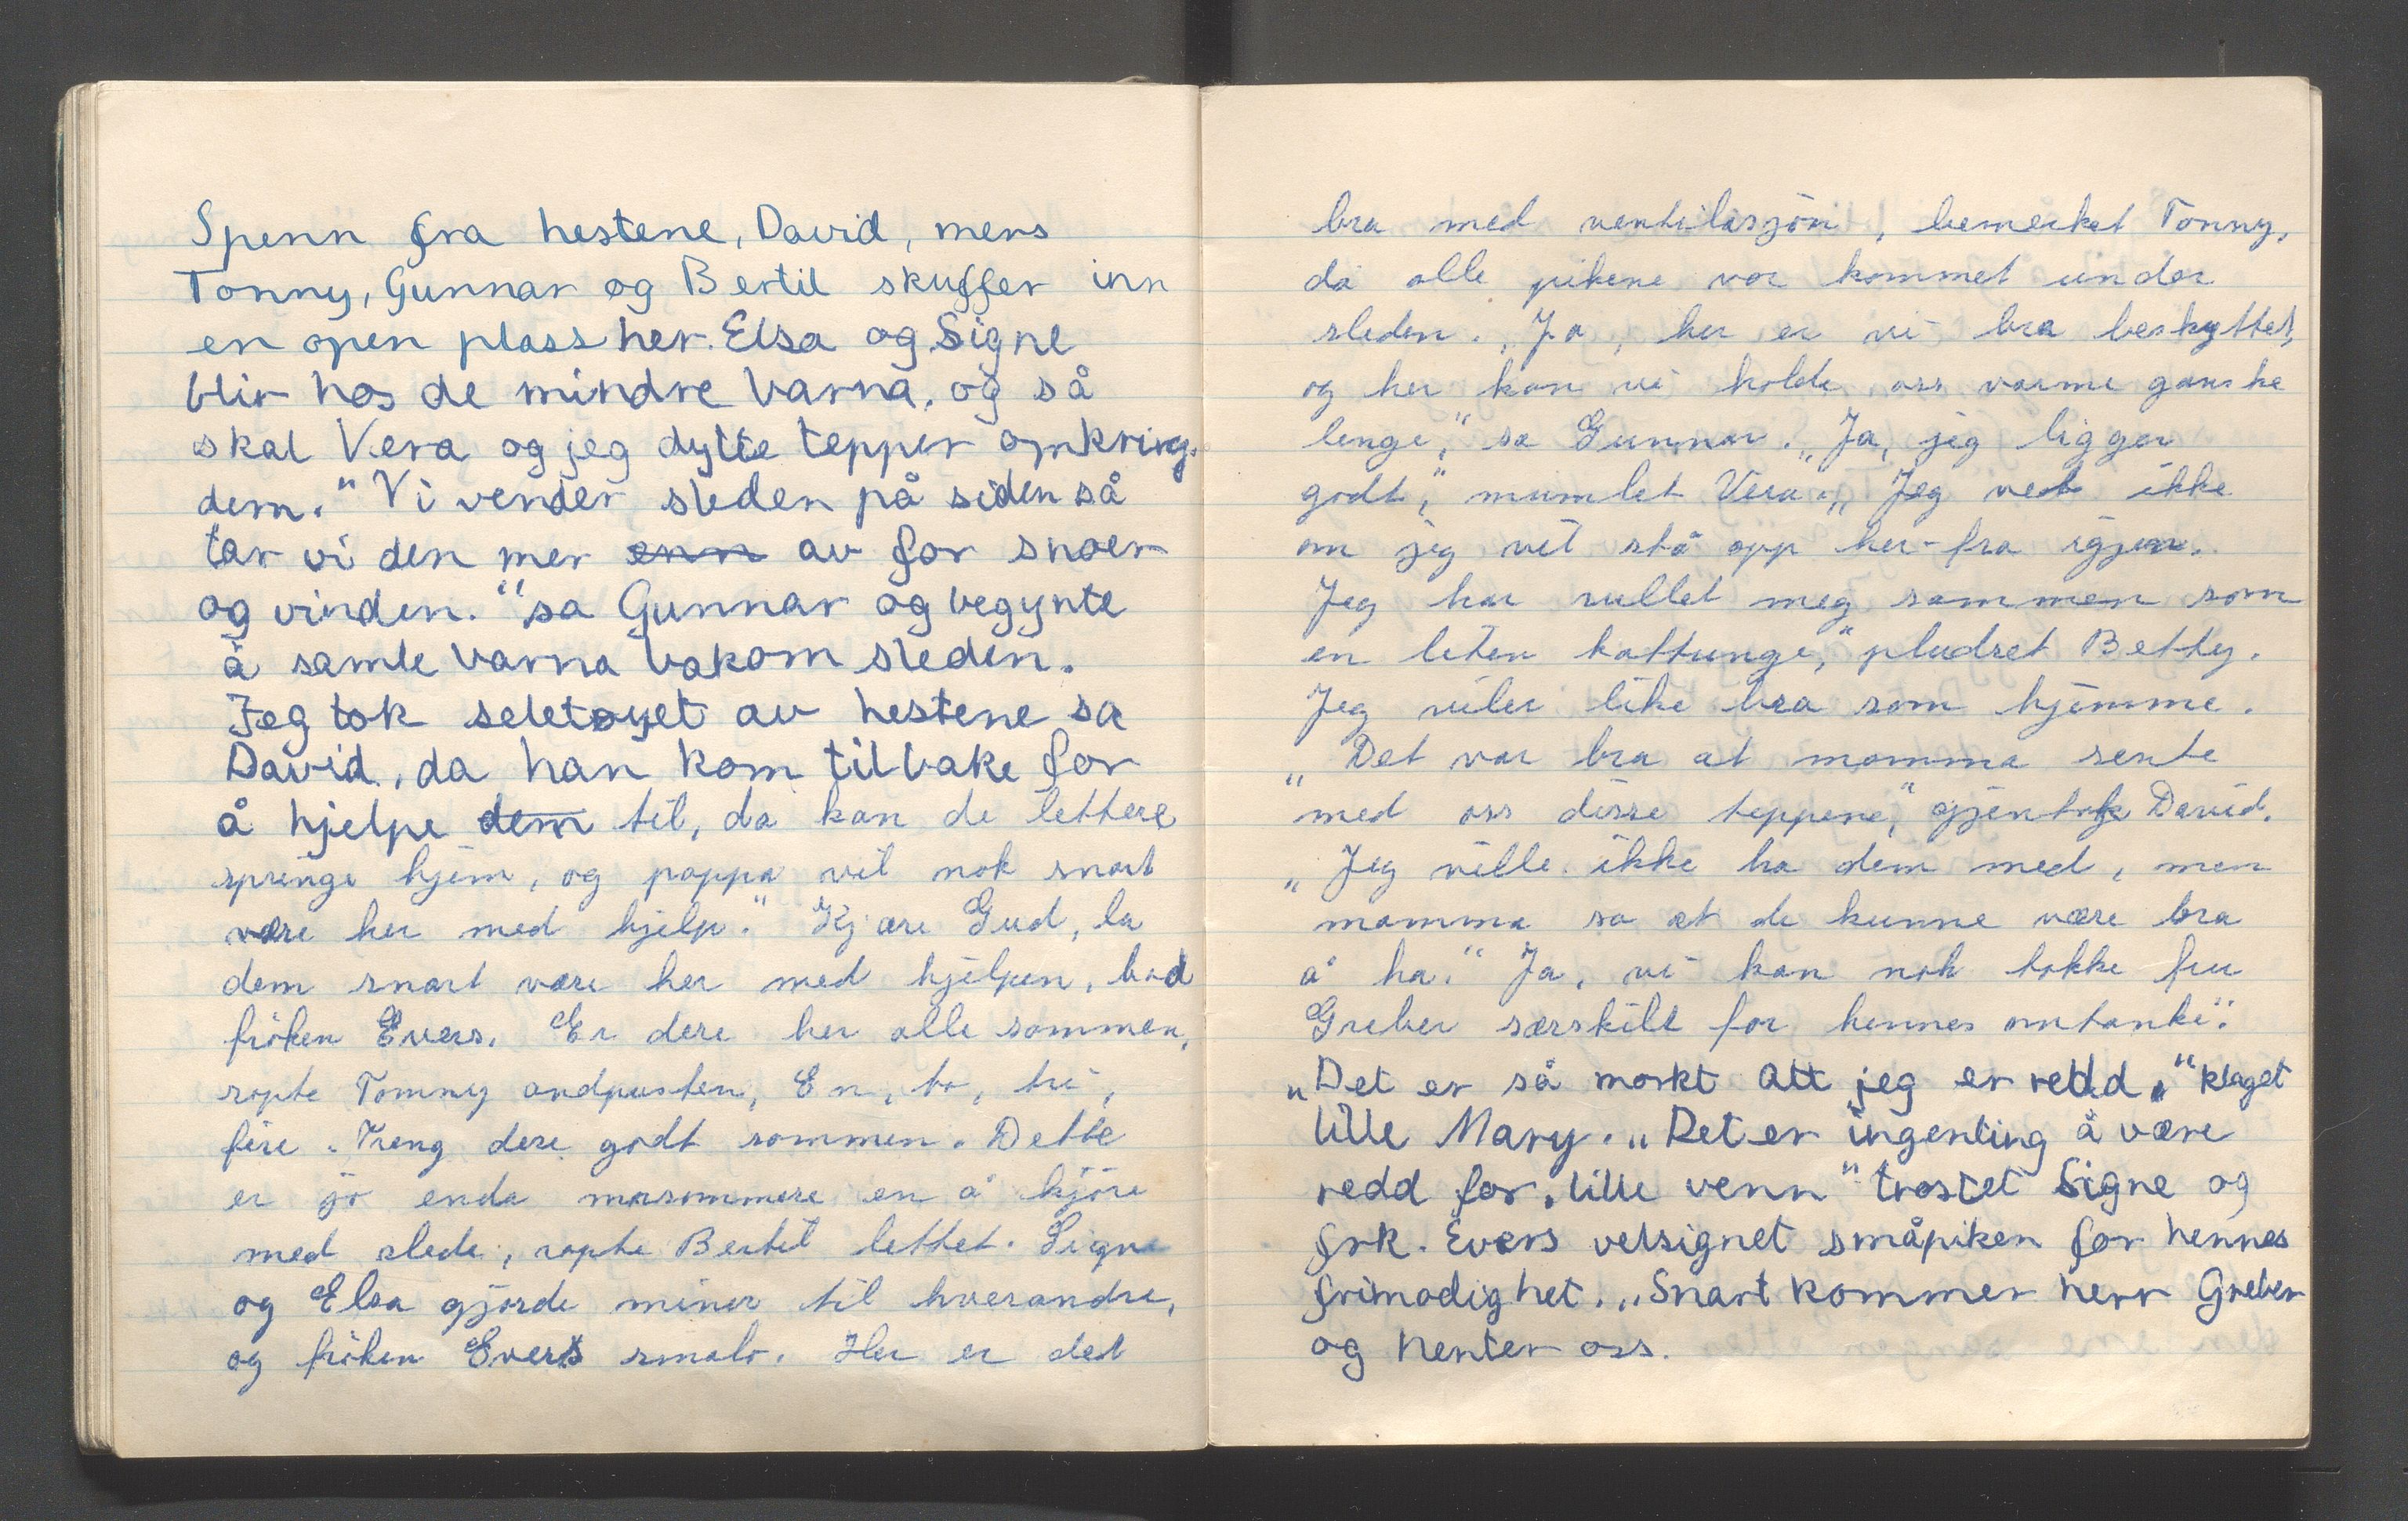 Spenn fra hestene, David, mens
Tonny, Gunnar og Bertil skuffer inn
en open plass her. Elsa og Signe
blir hos de mindre barna, og så
skal Vera og jeg dytte tepper omkring
dem." Vi vender sleden på siden så
tar vi den mer enn av for snøen
og vinden." sa Gunnar og begynte
å samle barna bakom sleden.
Jeg tok seletøyet av hestene sa
David, da han kom tilbake for
å hjelpe dem til, da kan de lettere
springe hjem, og pappa vil nok snart
være her med hjelp." Kjære Gud, la
dem snart være her med hjelpen, bad
frøken Evers. Er dere her alle sammen,
ropte Tonny andpusten, En, to, tre,
fire. Treng dere godt sammen. Dette
er jo enda morsommere en å kjøre
med slede, ropte Bertil lettet. Signe
og Elsa gjorde miner til hverandre,
og frøken Evers smålo. Her er det
bra med ventilasjon, bemerket Tonny,
da alle pikene var kommet under
sleden. „Ja, her er vi bra beskyttet,
og her kan vi holde oss varme ganske
lenge," sa Gunnar. „Ja, jeg ligger
godt," mumlet Vera. „Jeg vet ikke
om jeg vil stå opp her-fra igjen.
Jeg har rullet meg sammen som
en liten kattunge," pludret Betty.
Jeg viler like bra som hjemme.
„Det var bra at mamma sente
"med oss disse teppene," gjentok David.
„Jeg ville ikke ha dem med, men
mamma sa at de kunne være bra
å ha." Ja, vi kan nok takke fru
Greber særskilt for hennes omtanke."
„Det er så mørkt att jeg er redd," klaget
lille Mary. „Det er ingenting å være
redd for, lille venn" trøstet Signe og
frk. Evers velsignet småpiken for hennes
frimodighet. „Snart kommer herr Greber
og henter oss.